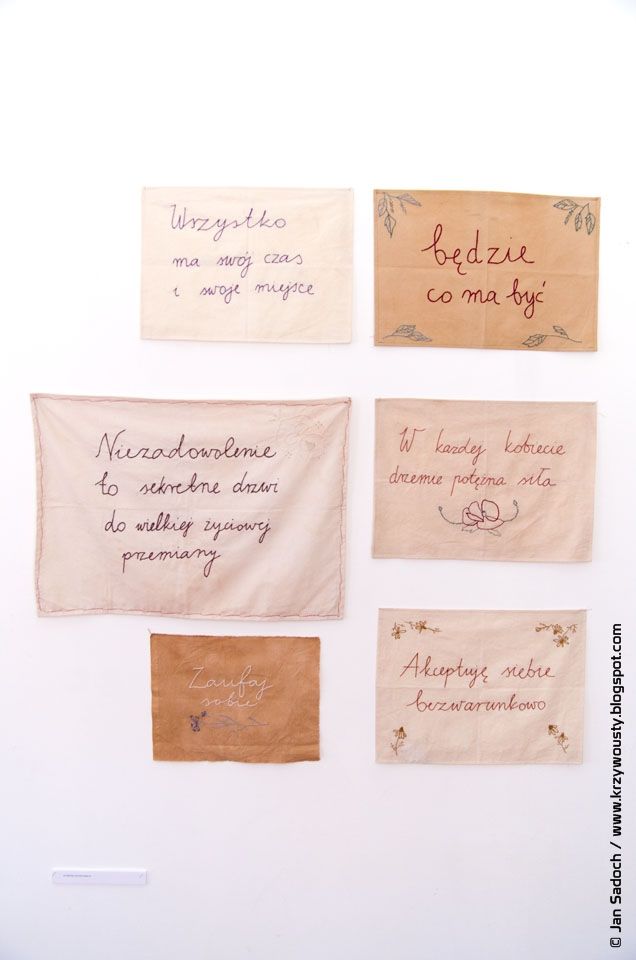 Wszystko
ma swój czas
i swoje miejsce
będzie
co ma być
Niezadowolenie
to sekretne drzwi
do wielkiej życiowej
przemiany
W każdej kobiecie
drzemie potężna siła
Zaufaj
sobie
Akceptuję siebie
bezwarunkowo
© Jan Sadoch / www.krzywousty.blogspot.com